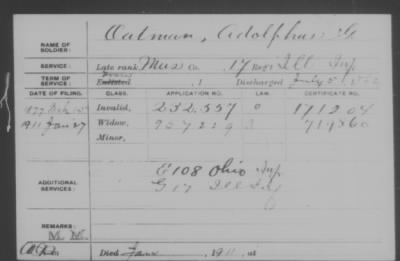 Oatman, Adolphus G
NAME OF SOLDIER:
SERVICE: Late rank, Mus Co. , 17 Reg't Ill Inf
TERM OF SERVICE: Enlisted , 1 Discharged July 5 1862
DATE OF FILING. CLASS. APPLICATION NO. LAW. CERTIFICATE NO.
1877 Invalid, 232.557 171204
1911 Jan 27 Widow, 957229 719860
Minor,
ADDITIONAL SERVICES: E 108 Ohio Inf
G 17 Ill Inf
REMARKS:
Died Jan 1911, at